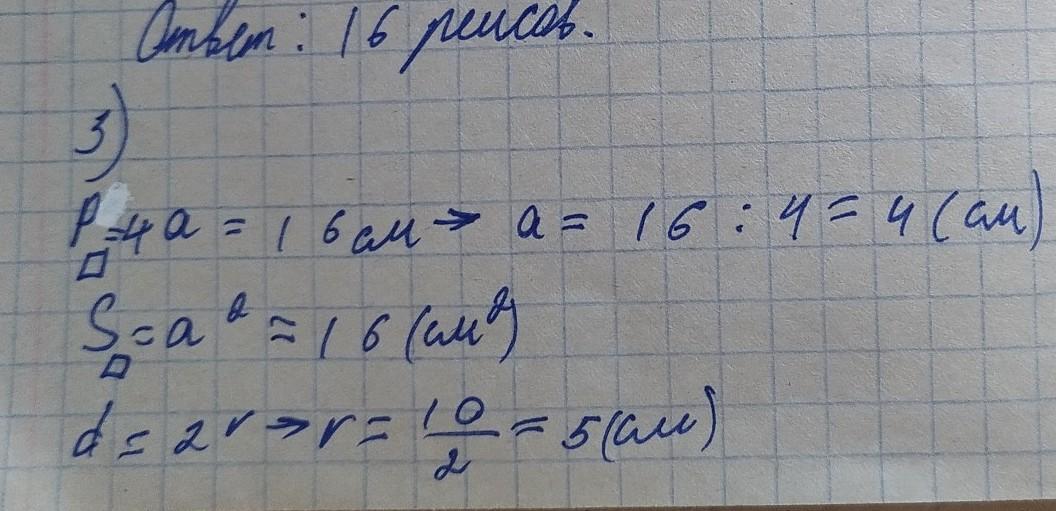 Ответ: 16 рейсов.
3)
P□=4a = 16см → a = 16 : 4 = 4 (см)
S□ = a² = 16 (см²)
d = 2r → r = 10/2 = 5 (см)